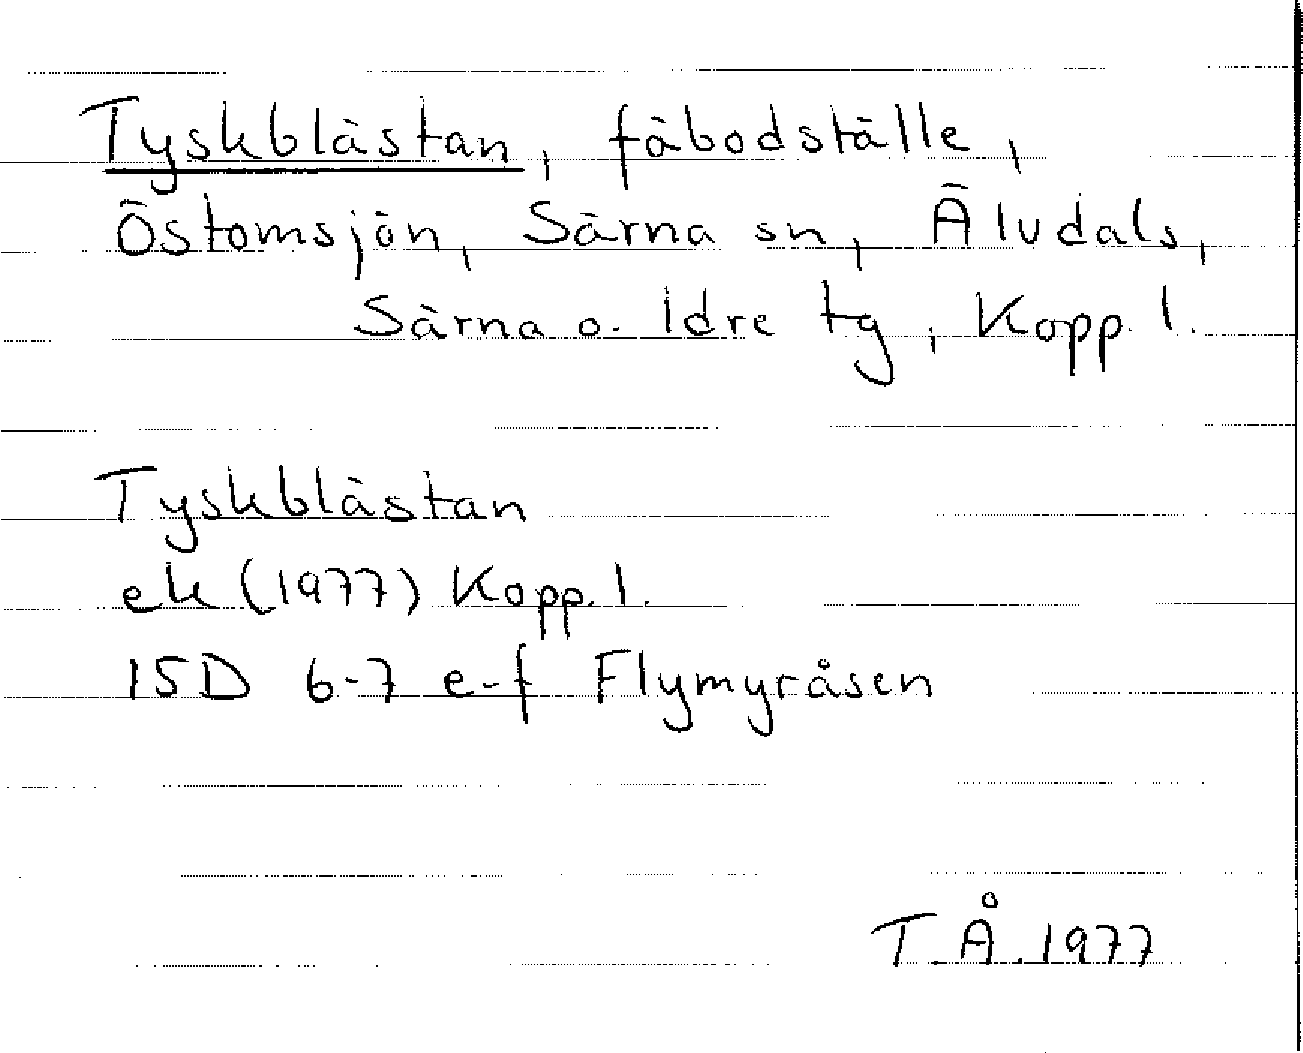 Tyskblästan, fäbodställe,
Östomsjön, Särna sn, Älvdals,
Särna o. Idre tg, Kopp. l.
Tyskblästan
ek (1977) Kopp. l.
15D 6-7 e-f Flymyråsen
T.Å. 1977